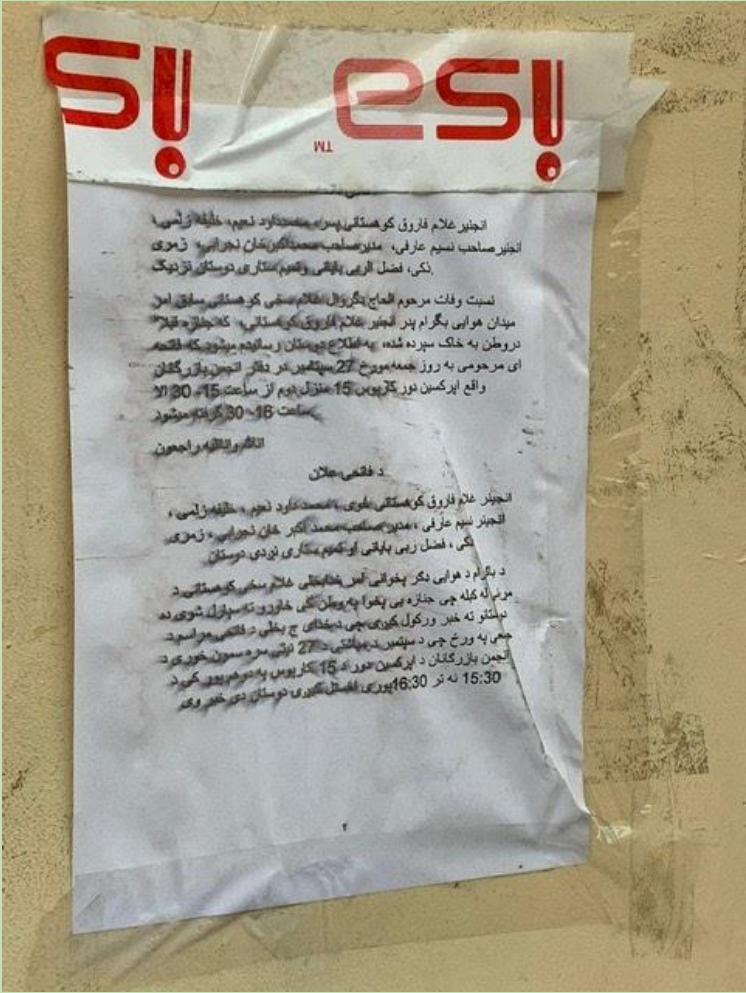 انجنیر غلام فاروق کوهستانی پسر، محمدداود نعیم، خلیفه زلمی،
انجنیر صاحب نسیم عارفی، مدیرصاحب محمداکبرخان نجرابی، زمری
ذکی، فضل الربی بایانی وتمیم ستاری دوستان نزدیک.
نسبت وفات مرحوم الحاج دگروال غلام سخی کوهستانی سابق امر
میدان هوایی بگرام پدر انجنیر غلام فاروق کوهستانی، که جنازه قبلا"
دروطن به خاک سپرده شده، به اطلاع دوستان رسانیده میشود که فاتحه
ای مرحومی به روز جمعه مورخ 27 سپتامبر در دفتر انجمن بازرگانان
واقع اپرکسین دور کارپوس 15 منزل دوم از ساعت 15- 30 الا
ساعت 16- 30 گرفته میشود
انالله واناالیه راجعون
د فاتحی علان
انجینر غلام فاروق کوهستانی ځوی ، محمد داود نعیم ، خلیفه زلمی ،
انجینر نسیم عارفی ، مدیر صاحب محمد اکبر خان نجرابی ، زمری
ذکی ، فضل ربی بایانی او تمیم ستاری نږدی دوستان
د باگرام د هوایی دگر پخوانی آمر غلام سخی کوهستانی د
مړنی له کبله چی جنازه یی پخوا په وطن کی خاورو ته سپارل شوی ده
دوستانو ته خبر ورکول کیږی چی د فاتحی مراسم د
جمعی په ورځ چی د سپتمبر د میاشتی د 27 نیټی سره سمون خوری د
انجمن بازرگانان د اپرکسین دور د 15 کارپوس په دوهم پوړ کی د
15:30 نه تر 16:30پوری اخستل کیږی دوستان دی خبر وی